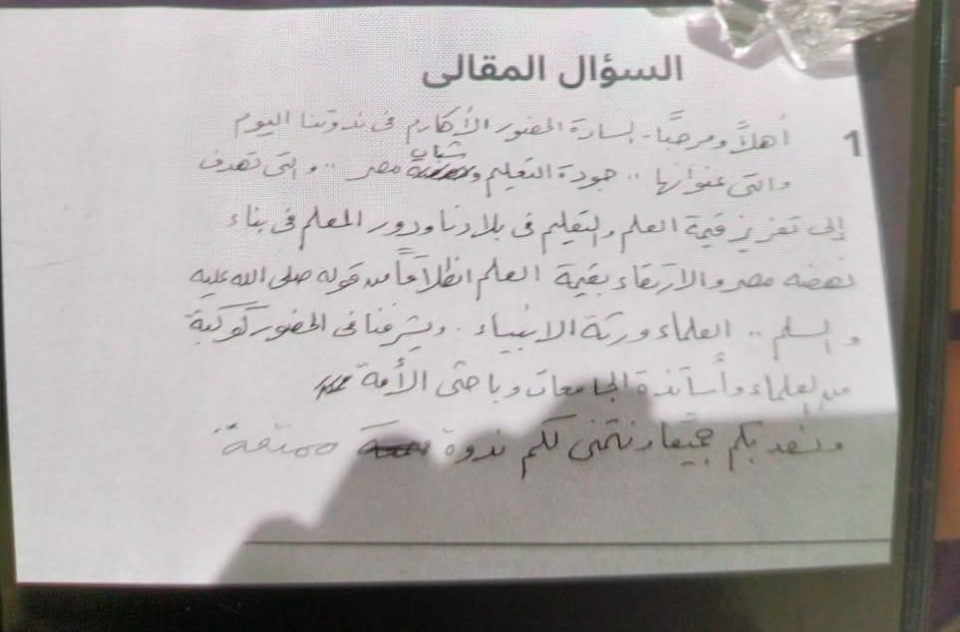 السؤال المقالى
1 أهلاً ومرحباً.. لسادة الحضور الأكارم فى ندوتنا اليوم
والتى عنوانها .. جودة التعليم وشباب مصر .. والتى تهدف
إلى تعزيز قيمة العلم والتعليم فى بلادنا ودور المعلم فى بناء
نهضه مصر والارتقاء بقيمة العلم انطلاقاً من قوله صلى الله عليه
والسلم .. العلماء ورثة الانبياء . ويشرفنا فى الحضور كوكبة
من العلماء وأساتذة الجامعات وباحثى الأمة
ونسعد بكم جميعاً ونتمنى لكم ندوة ممتعة.